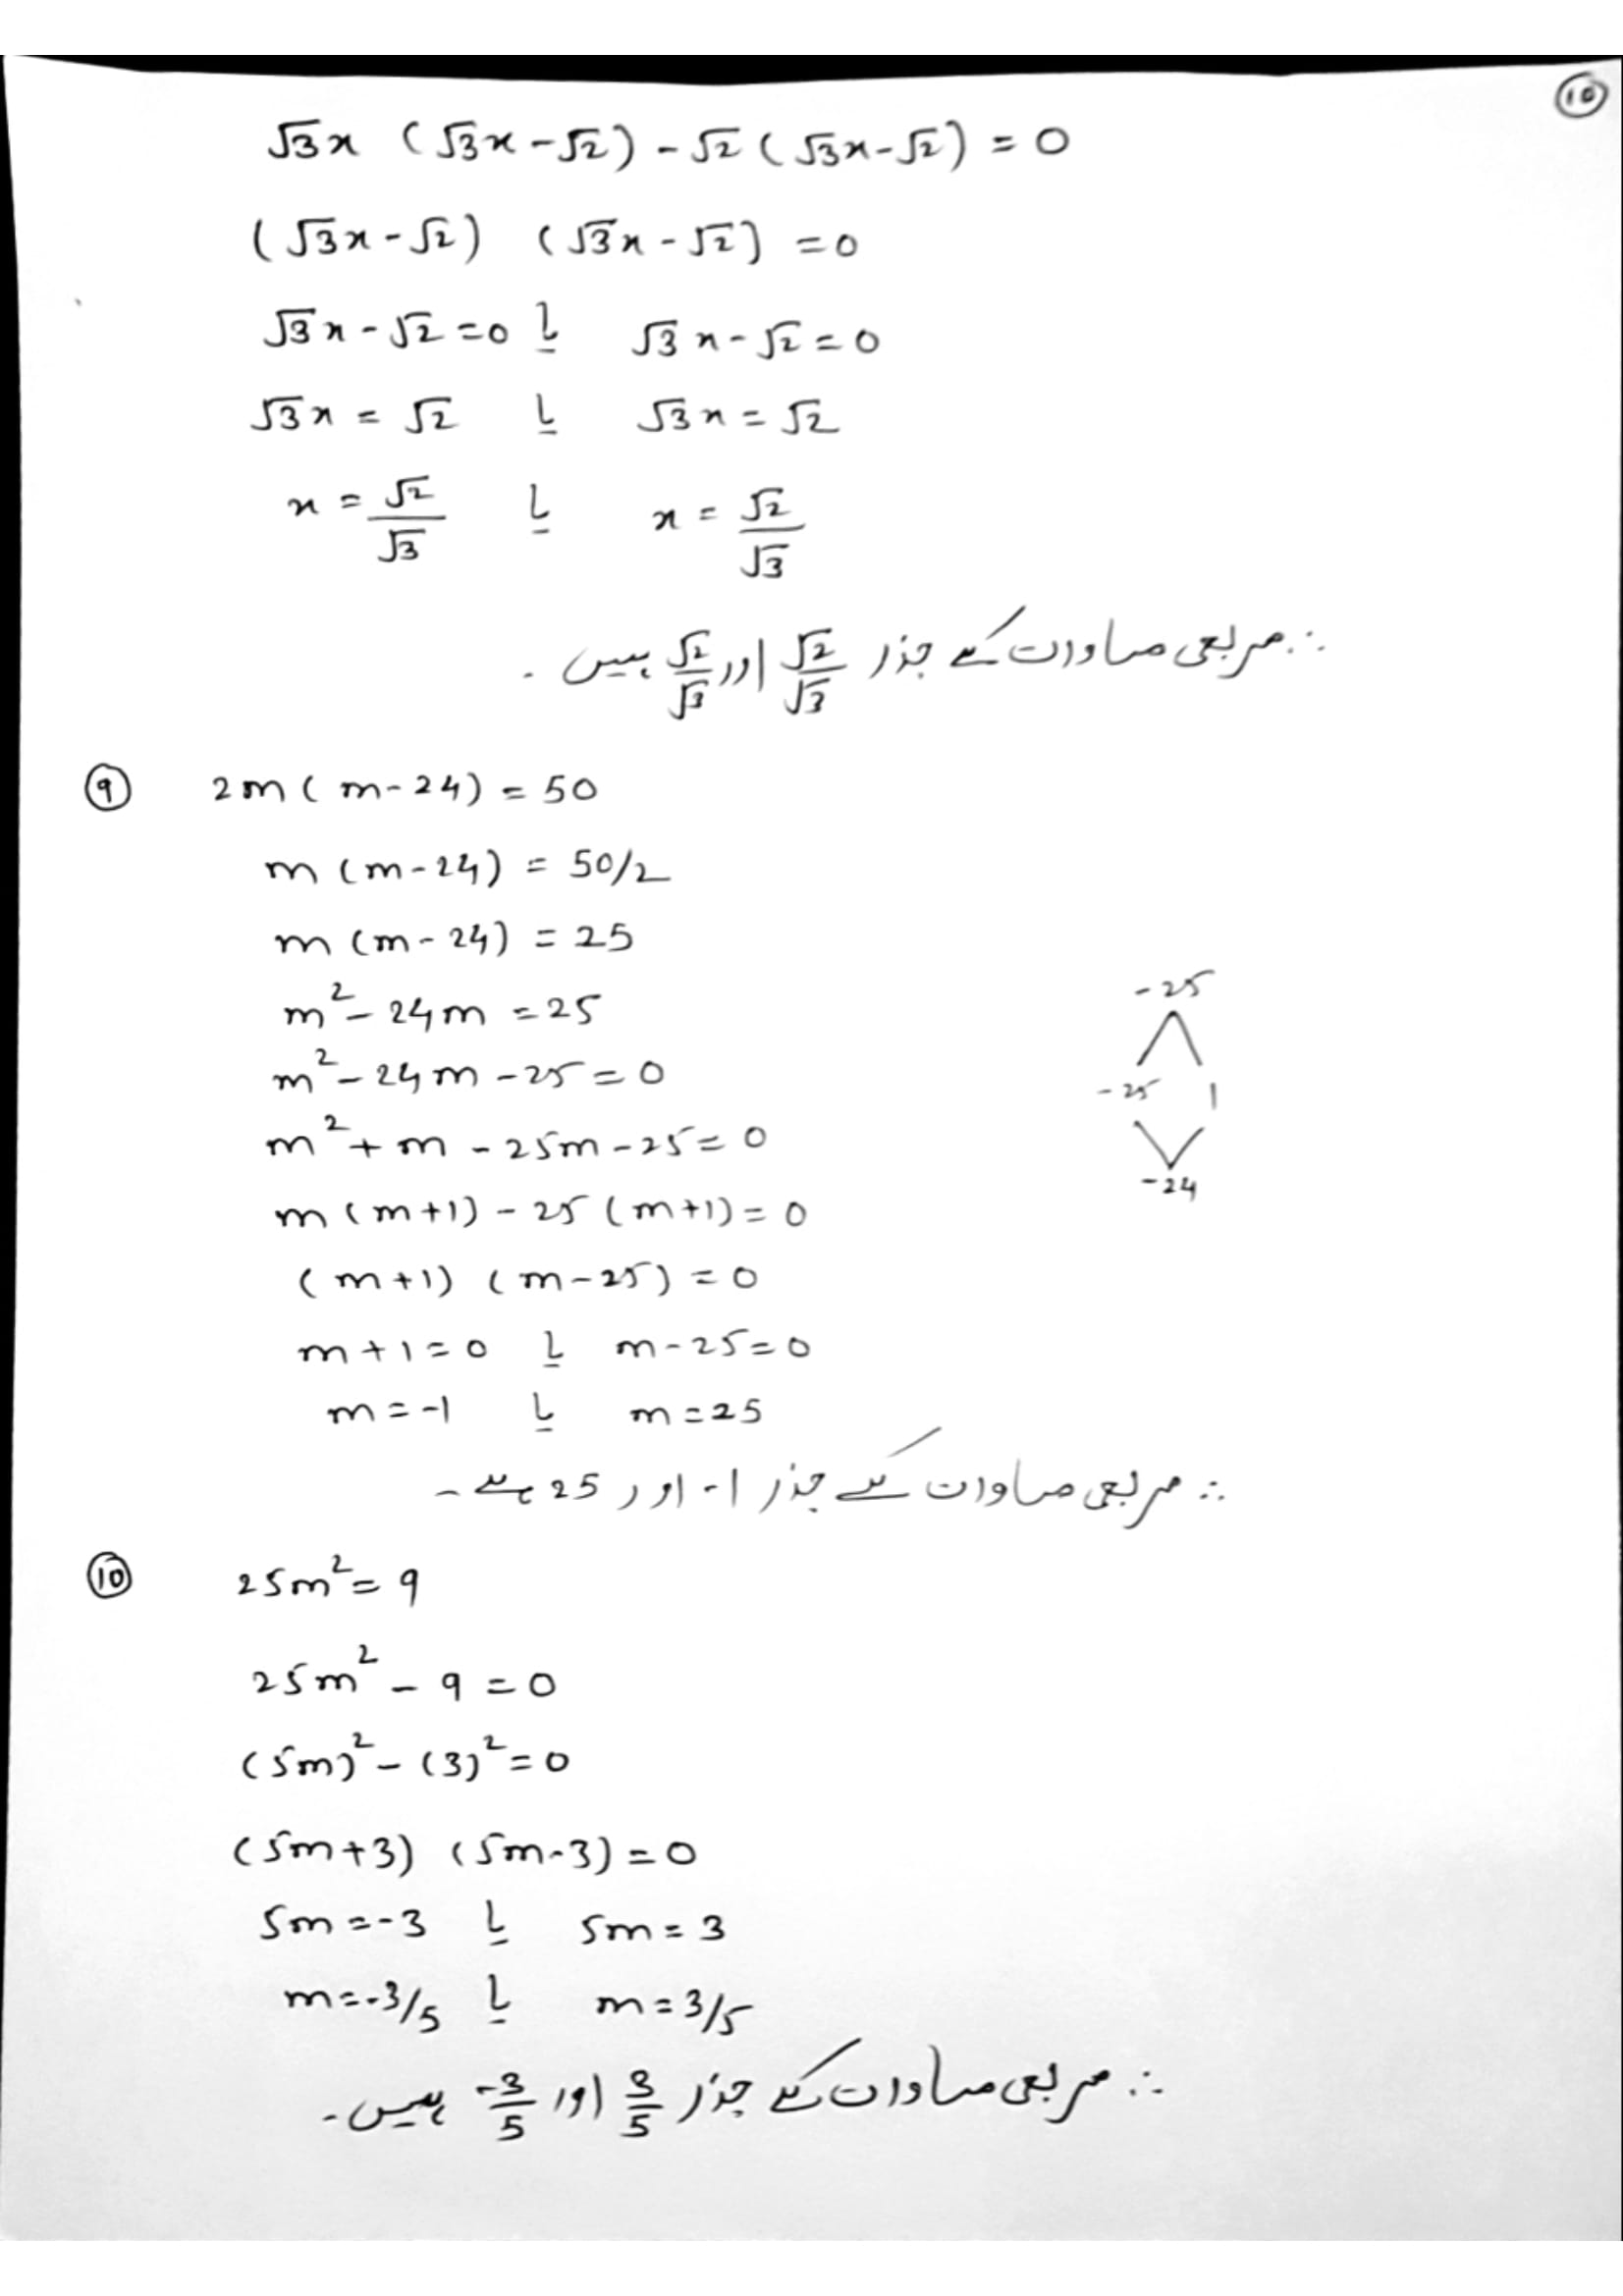 ⑩
√3x (√3x-√2) - √2 (√3x-√2) = 0
(√3x-√2) (√3x-√2) = 0
√3x-√2=0 یا √3x-√2=0
√3x = √2 یا √3x = √2
x = √2/√3 یا x = √2/√3
∴ مربعی مساوات کے جذر √2/√3 اور √2/√3 ہیں ۔
⑨ 2m(m-24) = 50
m(m-24) = 50/2
m(m-24) = 25
m²-24m = 25
m²-24m-25=0
m²+m-25m-25=0
m(m+1)-25(m+1)=0
(m+1) (m-25)=0
m+1=0 یا m-25=0
m=-1 یا m=25
-25
-25 1
-24
∴ مربعی مساوات کے جذر -1 اور 25 ہے ۔
⑩ 25m²=9
25m²-9=0
(5m)²-(3)²=0
(5m+3) (5m-3)=0
5m=-3 یا 5m=3
m=-3/5 یا m=3/5
∴ مربعی مساوات کے جذر 3/5 اور -3/5 ہیں۔